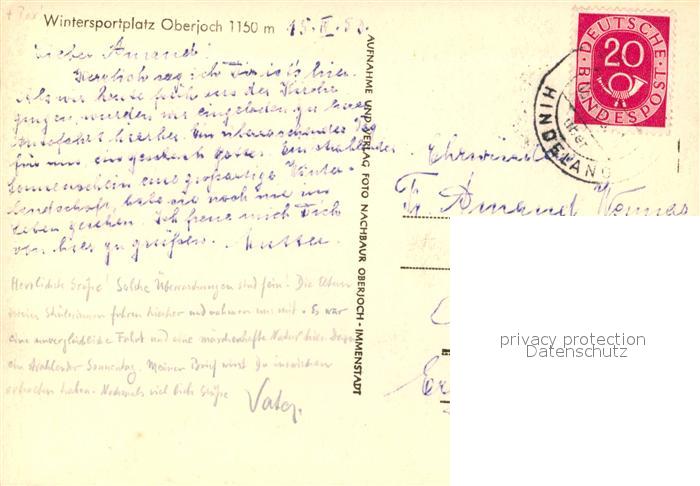 Wintersportplatz Oberjoch 1150 m 15. II. 53.
Lieber Amand!
Herrlich ist's hier.
Als wir heute früh aus der Kirche
gingen, wurden wir eingeladen zu einer
Autofahrt hierher. Ein überraschender
für uns ein Geschenk Gottes. Ein strahlender
Sonnenschein eine großartige Winter-
landschaft, habe sie noch nie im
Leben gesehen. Ich freue mich Dich
von hier zu grüßen. Mutter.
Herzlichste Grüße! Solche Überraschungen sind fein! Die Eltern
einer Schülerin fuhren hierher und nahmen uns mit. Es war
eine unvergleichliche Fahrt und eine märchenhafte Natur hier. Dazu
ein strahlender Sonnentag. Meinen Brief wirst Du inzwischen
erhalten haben. Nochmals viel liebe Grüße
Vater.
AUFNAHME UND VERLAG FOTO NACHBAUR OBERJOCH-IMMENSTADT
DEUTSCHE
20
BUNDESPOST
HINDELANG
über
Ehrwürden
Fr. Amand
privacy protection
Datenschutz